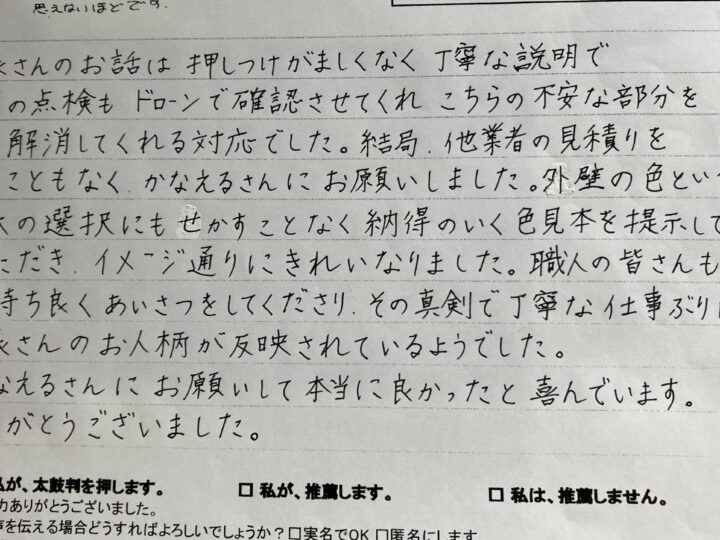 思えないほどです.
さんのお話は 押しつけがましくなく 丁寧な説明で
の点検も ドローンで確認させてくれ こちらの不安な部分を
解消してくれる対応でした。結局、他業者の見積りを
こともなく、かなえるさんに お願いしました。外壁の色とい
の選択にも せかすことなく 納得のいく 色見本を提示して
ただき、イメージ通りにきれいなりました。職人の皆さんも
持ち良く あいさつをしてくださり、その真剣で丁寧な仕事ぶり
さんの お人柄が反映されているようでした。
なえるさんに お願いして 本当に良かったと 喜んでいます。
がとうございました。
私が、太鼓判を押します。 □ 私が、推薦します。 □ 私は、推薦しません。
力ありがとうございました。
声を伝える場合どうすればよろしいでしょうか?□実名でOK □匿名にします